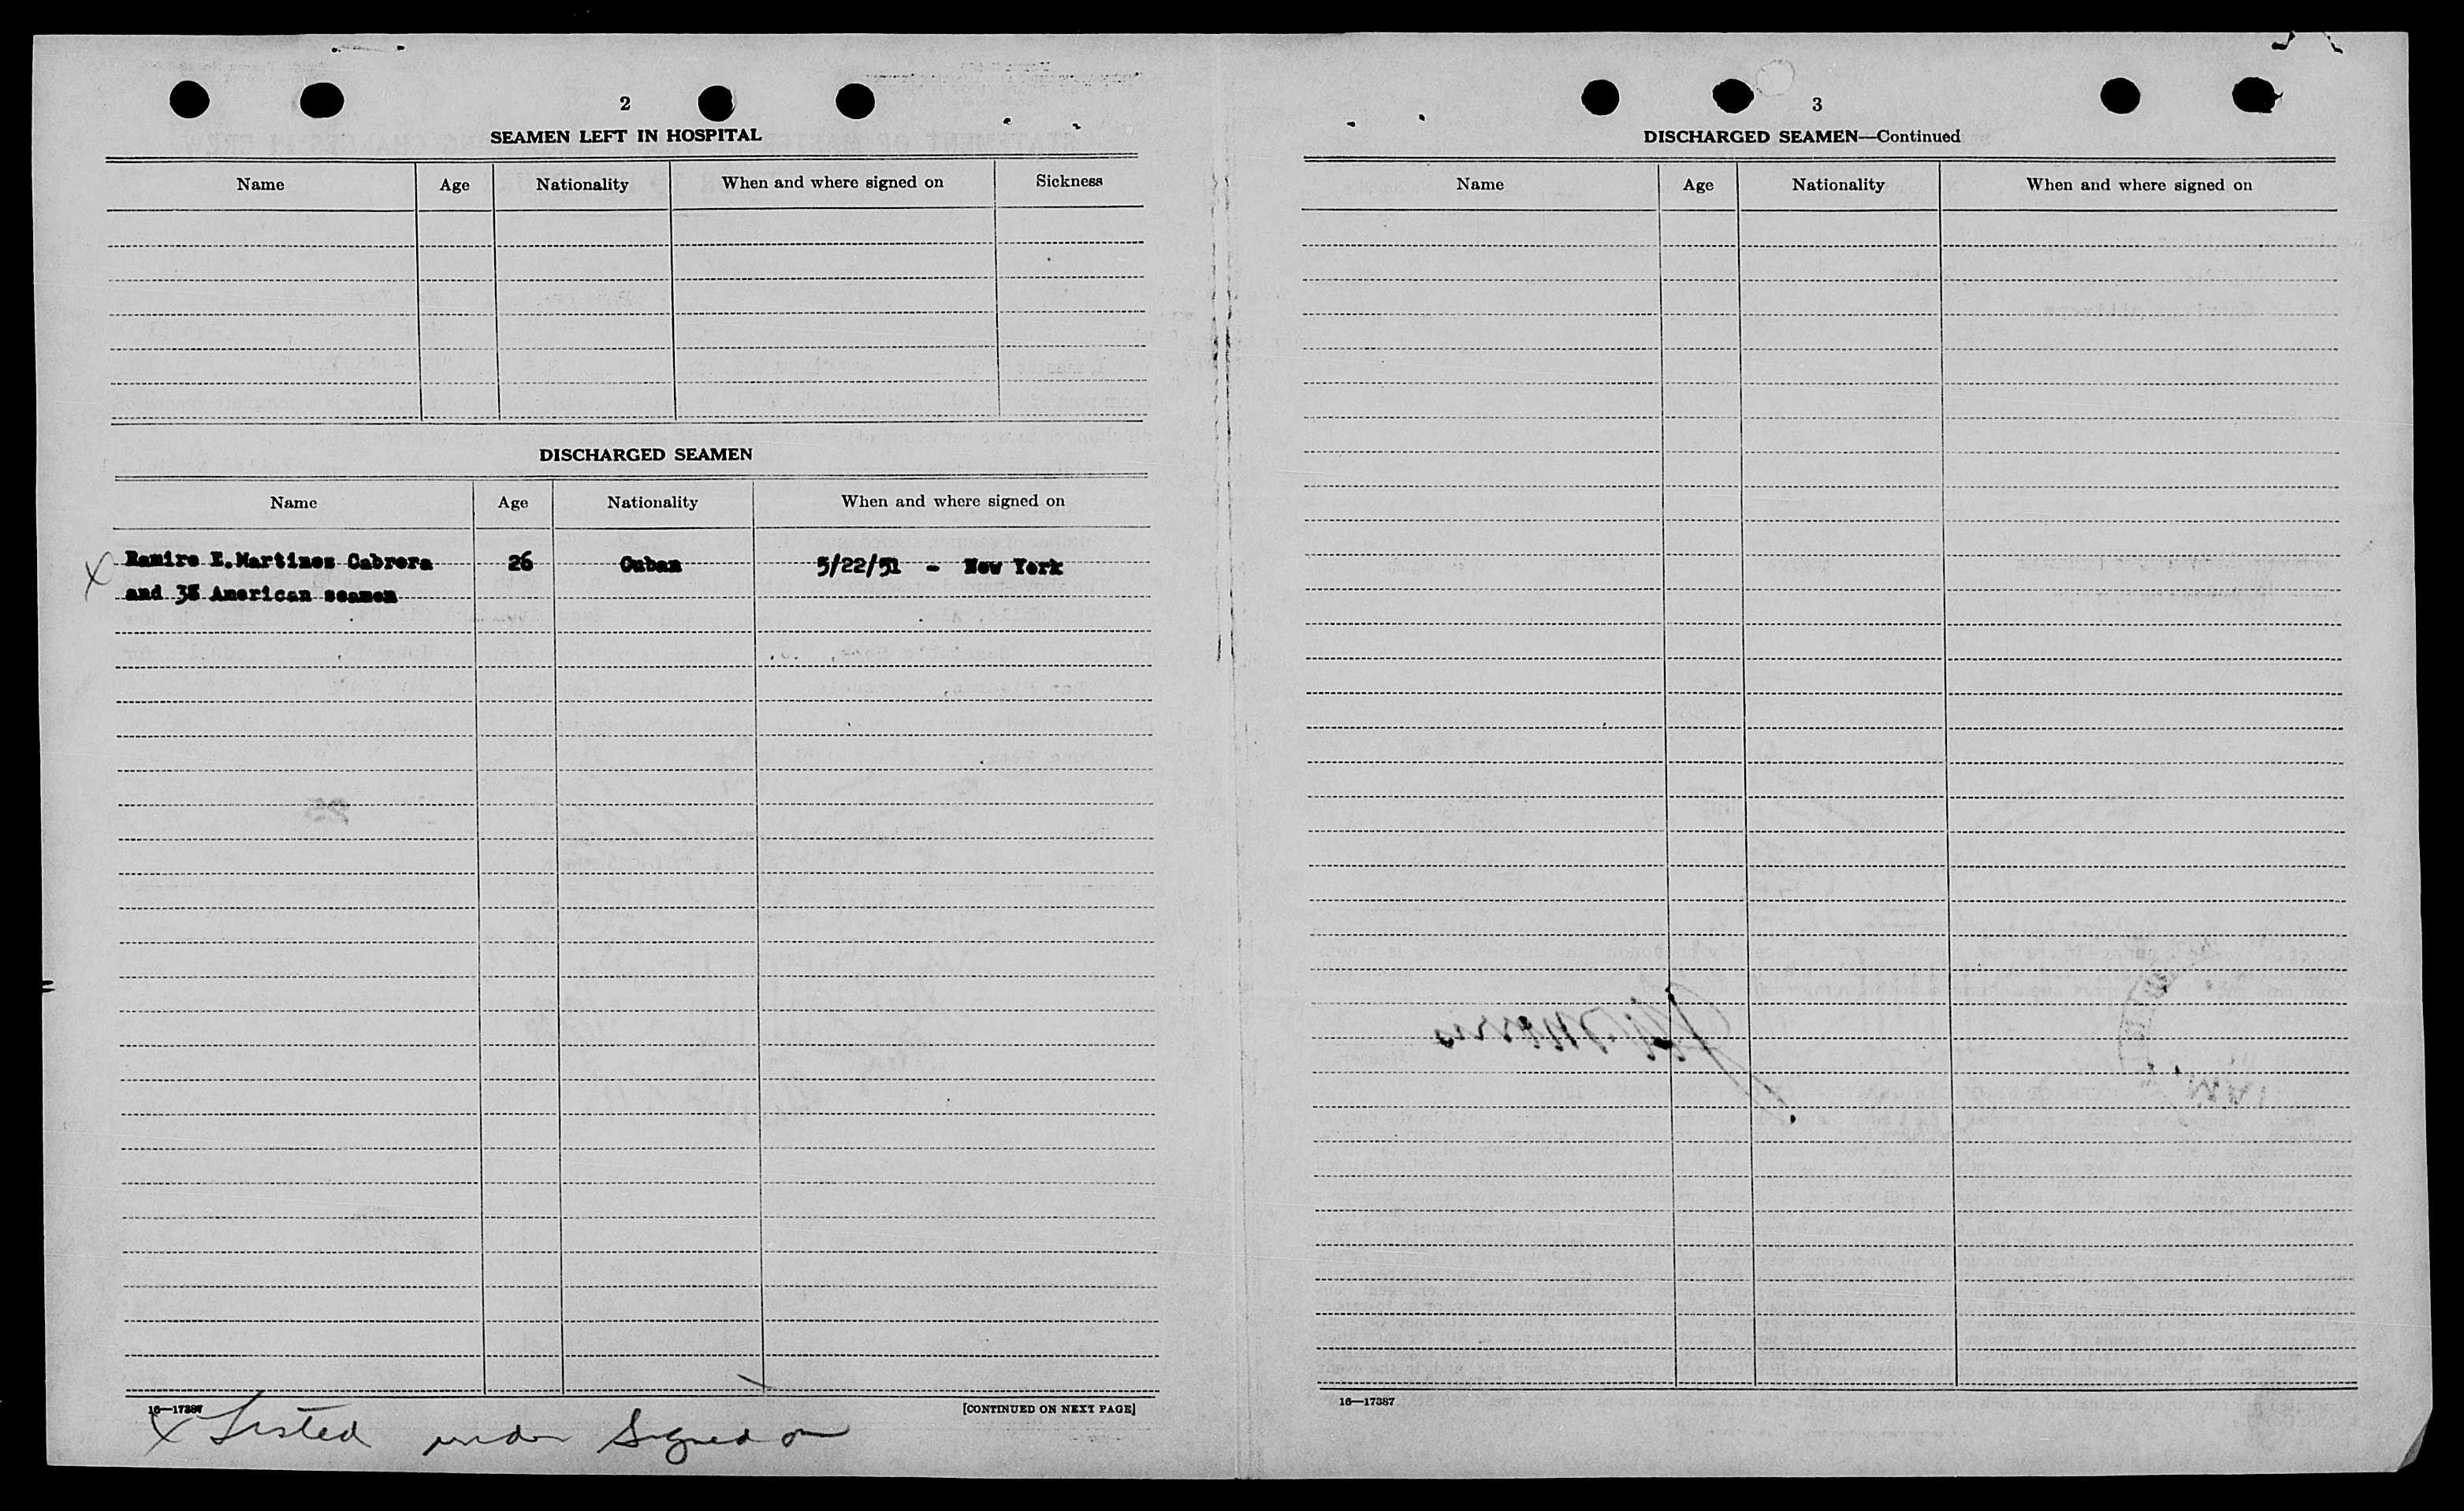 2
SEAMEN LEFT IN HOSPITAL
Name Age Nationality When and where signed on Sickness
DISCHARGED SEAMEN
Name Age Nationality When and where signed on
X Ramiro E.Martinez Cabrera 26 Cuban 5/22/51 - New York
and American seamen
16—17387 [CONTINUED ON NEXT PAGE]
X Listed under Signed on
3
DISCHARGED SEAMEN—Continued
Name Age Nationality When and where signed on
16—17387